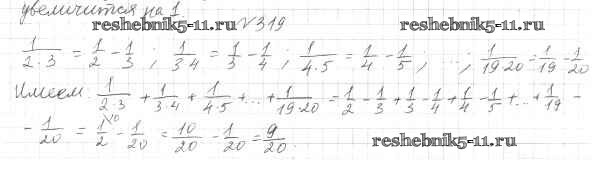 увеличится на 1.
reshebnik5-11.ru №319 reshebnik5-11.ru
1/(2·3) = 1/2 - 1/3 ; 1/(3·4) = 1/3 - 1/4 ; 1/(4·5) = 1/4 - 1/5 ; ...; 1/(19·20) = 1/19 - 1/20
Имеем 1/(2·3) + 1/(3·4) + 1/(4·5) + ... + 1/(19·20) = 1/2 - 1/3 + 1/3 - 1/4 + 1/4 - 1/5 + ... + 1/19 -
- 1/20 = 1\10/2 - 1/20 = 10/20 - 1/20 = 9/20.
reshebnik5-11.ru